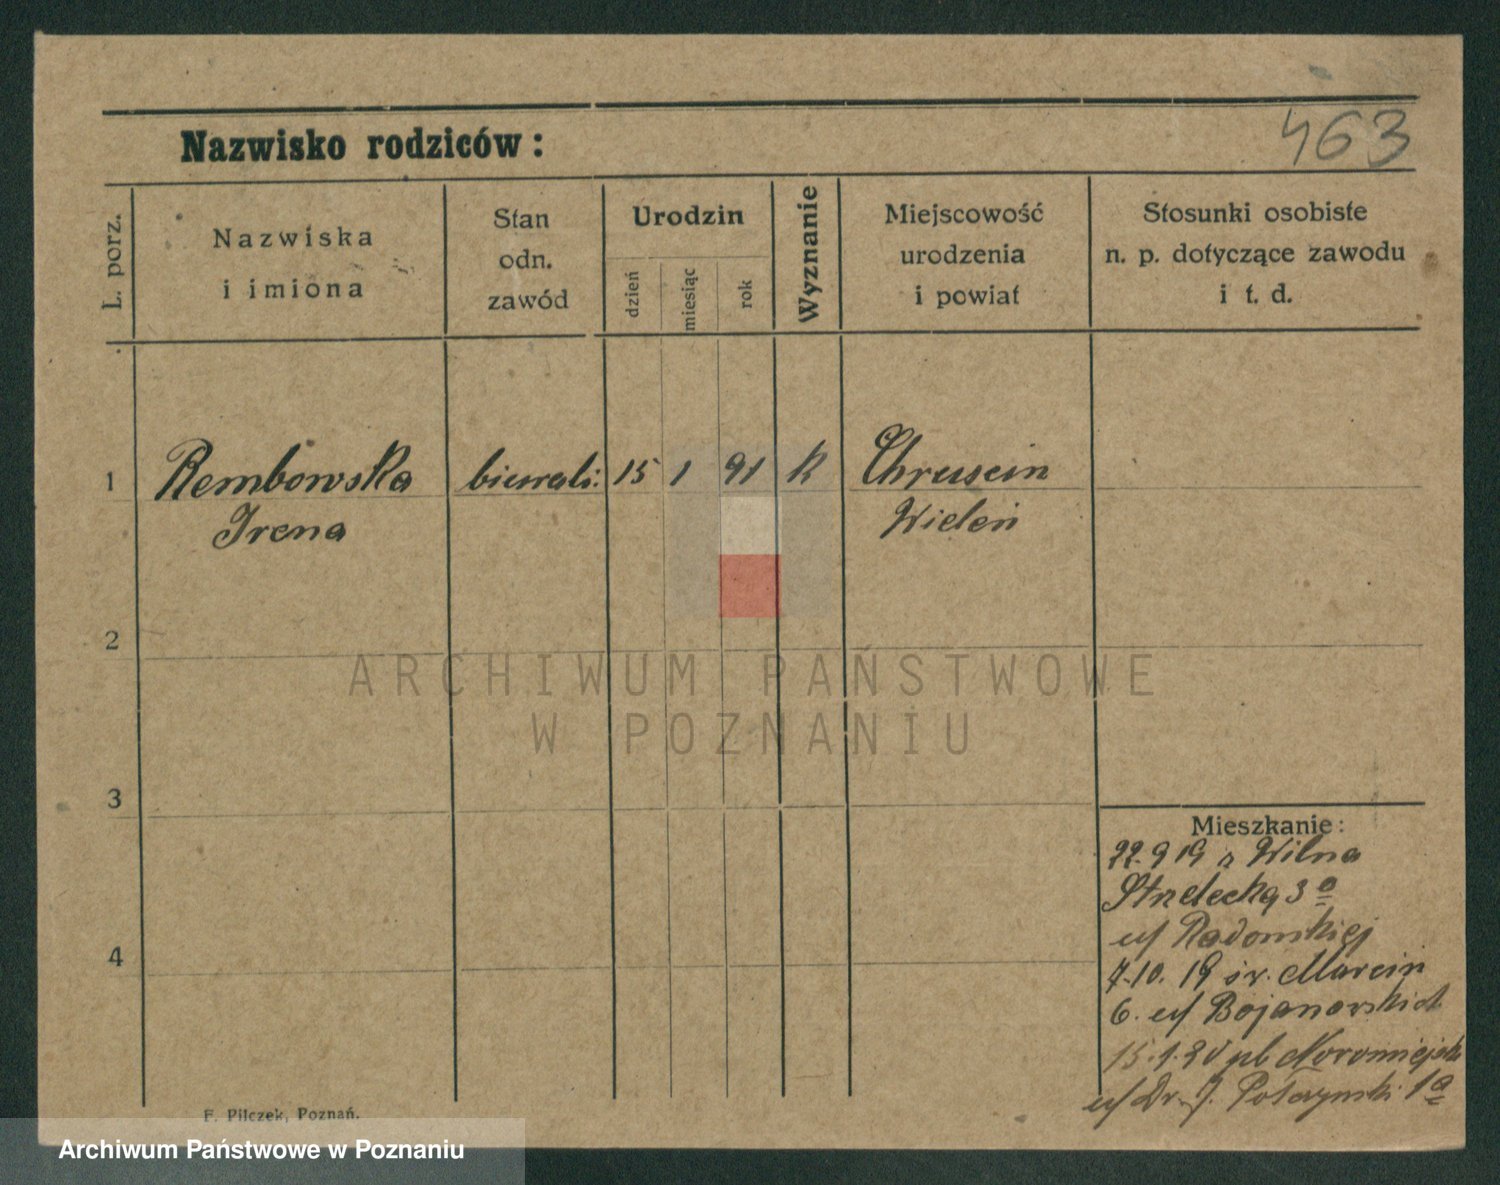 463
Nazwisko rodziców:
L. porz.
Nazwiska
i imiona
Stan
odn.
zawód
Urodzin
dzień
miesiąc
rok
Wyznanie
Miejscowość
urodzenia
i powiat
Stosunki osobiste
n. p. dotyczące zawodu
i t. d.
1 Rembowska 15 1 91 k
Irena Wieleń
2
ARCHIWUM PAŃSTWOWE
W POZNANIU
3
4
Mieszkanie:
22.9 19 z Wilna
Strzelecką 3a
u/ Radomskiej
7.10. 19 św. Marcin
6. u/ Bojanowskich
15.1.20 pl
u/ Dr. J. 1a
F. Pilczek, Poznań.
Archiwum Państwowe w Poznaniu